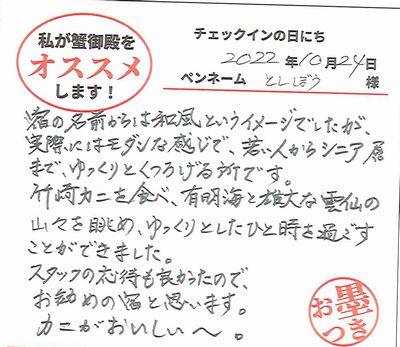 私が蟹御殿を
オススメ
します！
チェックインの日にち
2022年10月24日
ペンネーム としぼう 様
宿の名前からは和風というイメージでしたが、
実際にはモダンな感じで、若い人からシニア層
まで、ゆっくりとくつろげる所です。
竹崎カニを食べ、有明海と雄大な雲仙の
山々を眺め、ゆっくりとしたひと時を過ごす
ことができました。
スタッフの応待も良かったので、
お勧めの宿と思います。
カニがおいしい〜。
お墨つき